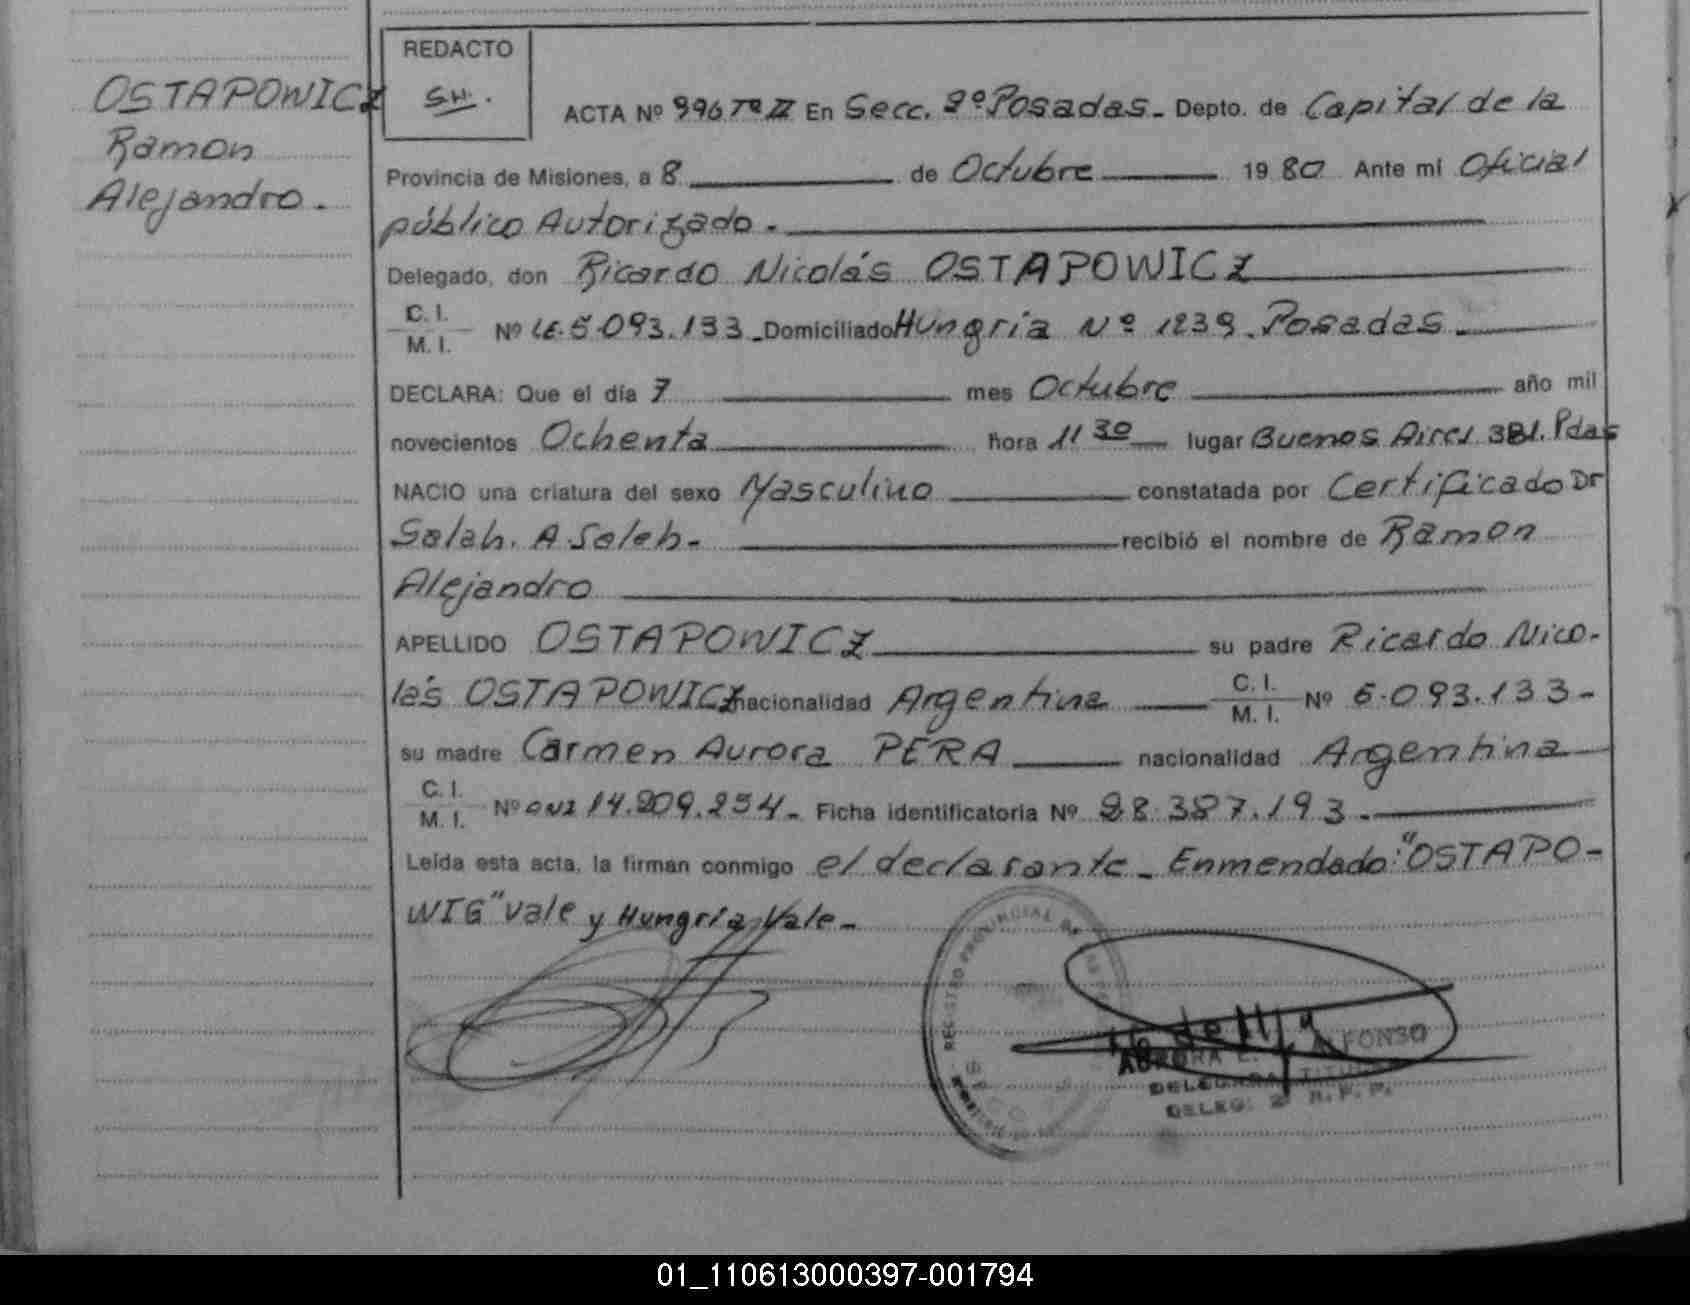 OSTAPOWICZ
Ramon
Alejandro.
REDACTO
S.H.
ACTA Nº 996 Tº II En Secc. 2º Posadas. Depto. de Capital de la
Provincia de Misiones, a 8 de Octubre 1980 Ante mi Oficial
público Autorizado.
Delegado, don Ricardo Nicolás OSTAPOWICZ
C. I.
M. I. Nº LE. 5.093.133 Domiciliado Hungría Nº 1239. Posadas.
DECLARA: Que el día 7 mes Octubre año mil
novecientos Ochenta hora 11 30 lugar Buenos Aires 381. Pdas
NACIO una criatura del sexo Masculino constatada por Certificado Dr
Salah. A. Saleh. recibió el nombre de Ramon
Alejandro
APELLIDO OSTAPOWICZ su padre Ricardo Nico-
lás OSTAPOWICZ nacionalidad Argentina C. I.
M. I. Nº 5.093.133-
su madre Carmen Aurora PERA nacionalidad Argentina
C. I.
M. I. Nº DNI 14.209.254. Ficha identificatoria Nº 28.387.193.
Leída esta acta, la firman conmigo el declarante. Enmendado: "OSTAPO-
WIG" Vale y Hungría Vale.
REGISTRO PROVINCIAL DE
AURORA E. ALFONSO
DELEGADA TITULAR
DELEG. 2 R. P. P.
01_110613000397-001794